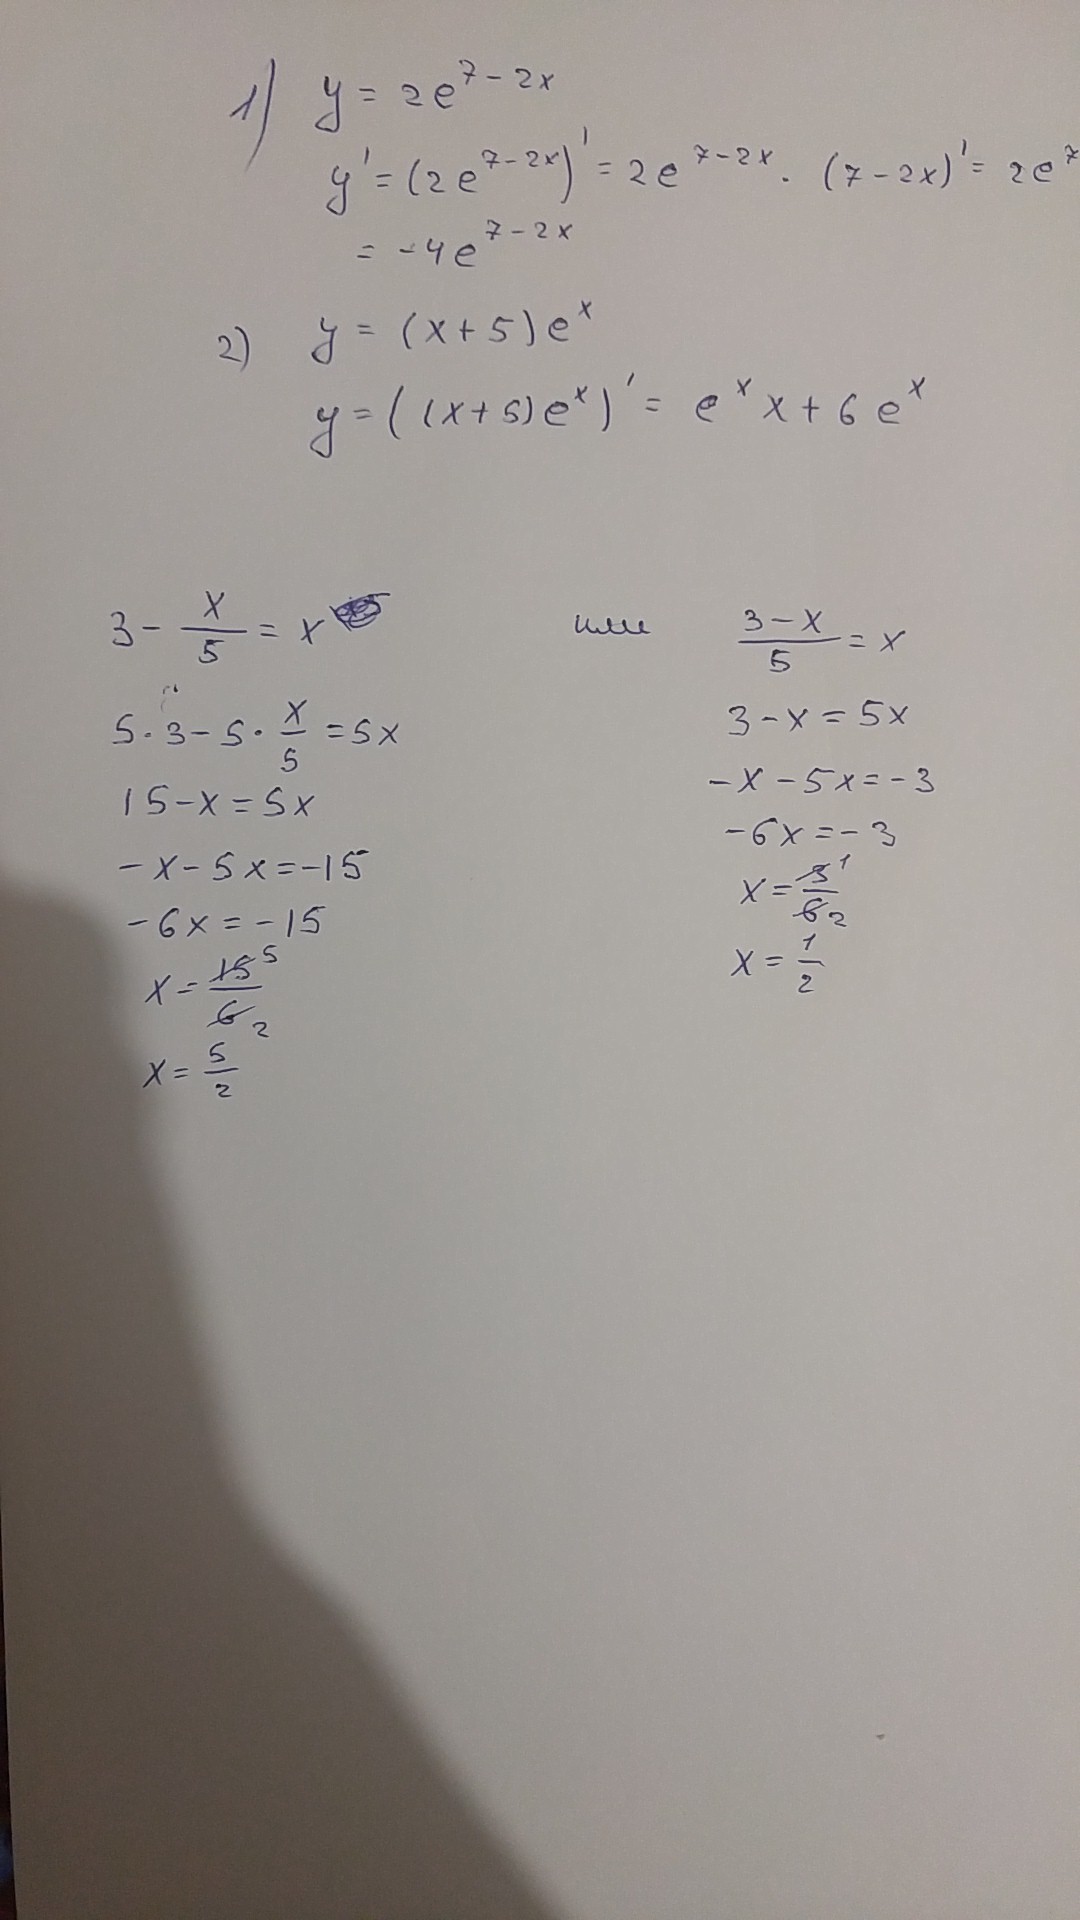 1) y = 2e^{7-2x}
y' = (2e^{7-2x})' = 2e^{7-2x} · (7-2x)' = 2e^{7
= -4e^{7-2x}
2) y = (x+5)e^x
y = ((x+5)e^x)' = e^x x + 6e^x
3 - x/5 = x
5·3 - 5·x/5 = 5x
15 - x = 5x
-x - 5x = -15
-6x = -15
x = 15 5/6 2
x = 5/2
или
3-x/5 = x
3 - x = 5x
-x - 5x = -3
-6x = -3
x = 3 1/6 2
x = 1/2